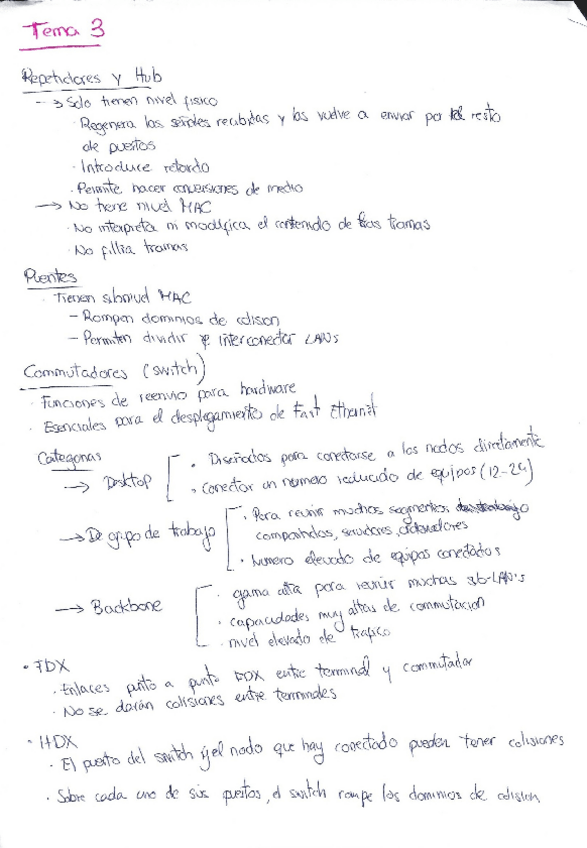 Tema 3
Repetidores y Hub
-→ Solo tienen nivel fisico
· Regenera las señales recibidas y las vuelve a enviar por el resto
de puertos
· Introduce retardo
· Permite hacer conversiones de medio
→ No tiene nivel MAC
· No interpreta ni modifica el contenido de las tramas
· No filtra tramas
Puentes
· Tienen subnivel MAC
- Rompen dominios de colision
- Permiten dividir e interconectar LANs
Commutadores (switch)
· Funciones de reenvio para hardware
· Esenciales para el desplegamiento de Fast Ethernet
Categorias
→ Desktop
· Diseñados para conectarse a los nodos directamente
· Conectar un numero reducido de equipos (12-24)
→ De grupo de trabajo
· Para reunir muchos segmentos
compartidos, servidores, ordenadores
· Numero elevado de equipos conectados
→ Backbone
· gama alta para reunir muchas sub-LAN's
· capacidades muy altas de commutacion
· nivel elevado de trafico
• FDX
· Enlaces punto a punto FDX entre terminal y commutador
· No se darán colisiones entre terminales
• HDX
· El puerto del switch y el nodo que hay conectado pueden tener colisiones
· Sobre cada uno de sus puertos, el switch rompe los dominios de colision